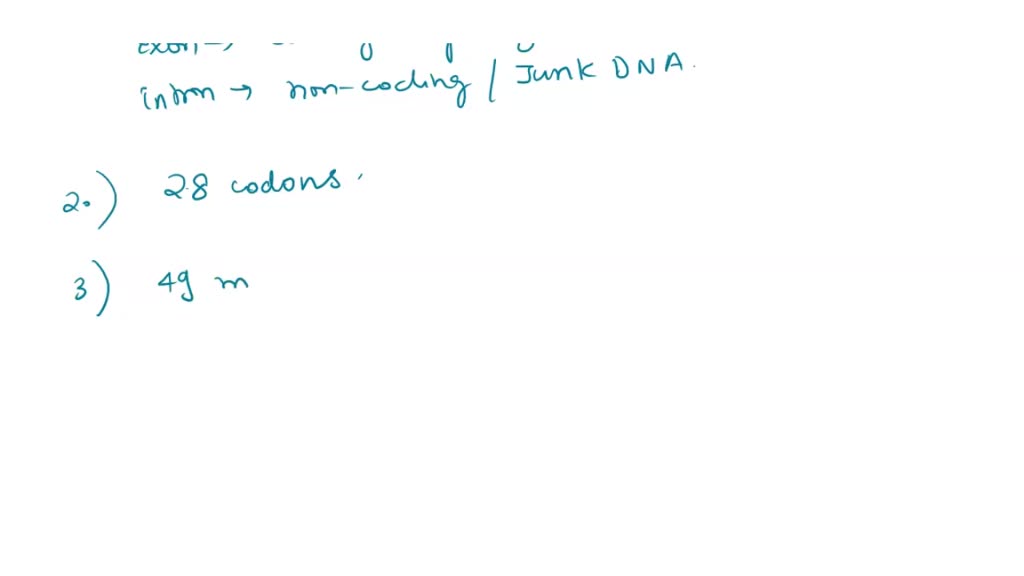 Exon →
intron → non-coding / Junk DNA.
2.) 28 codons.
3) 49 m